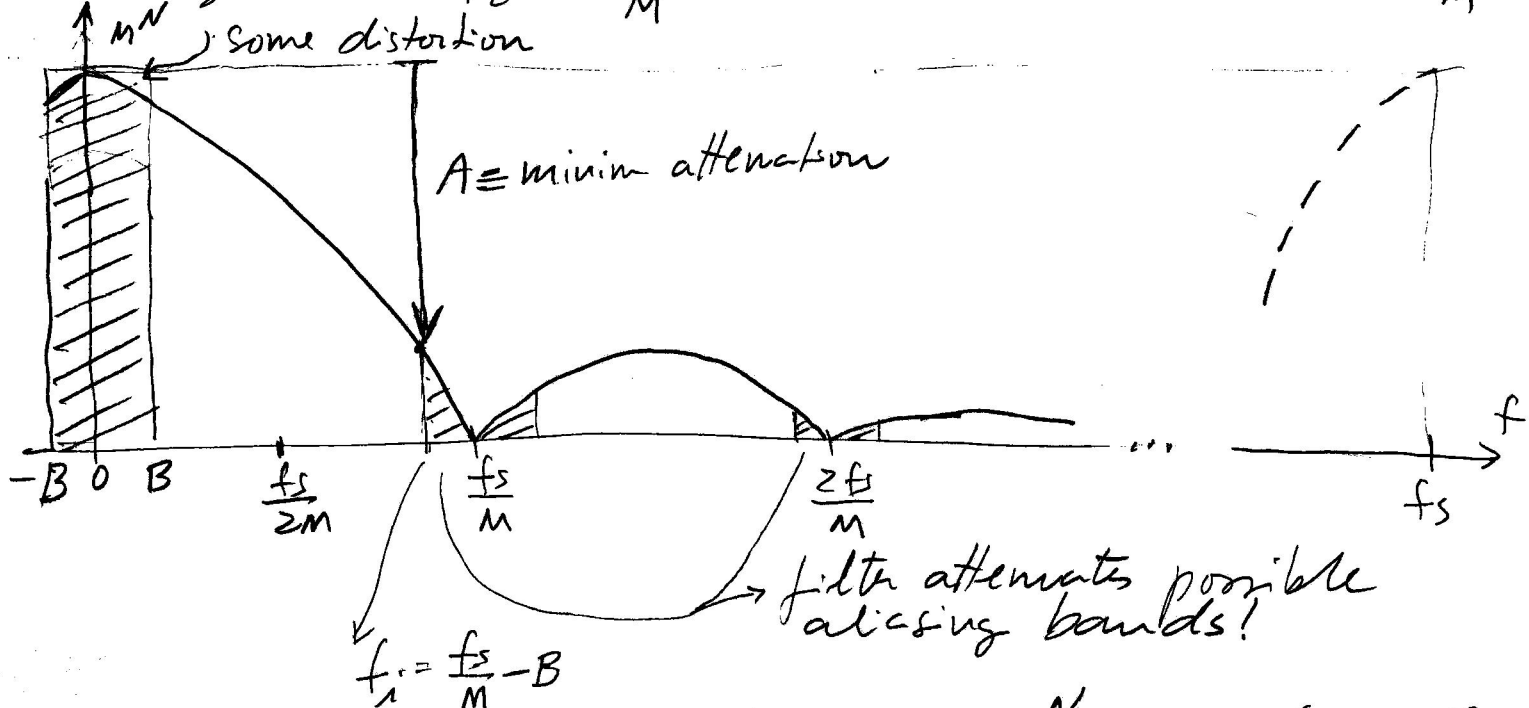 M
M
M^N
some distortion
A ≡ minim attenation
f
-B 0 B
fs/2M
fs/M
2fs/M
...
fs
filter attenuates possible
aliasing bands!
f₁ = fs/M - B
N